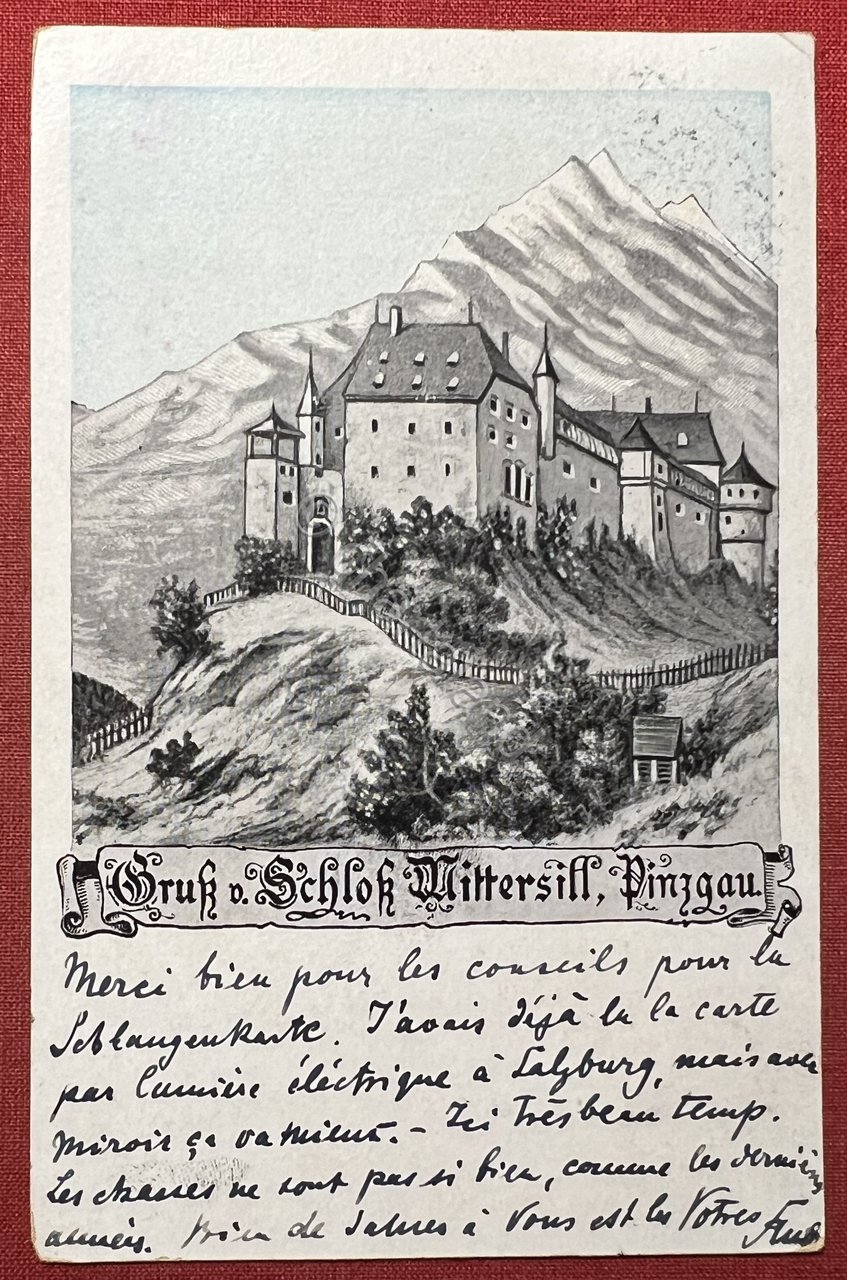 Gruß v. Schloß Mittersill, Pinzgau.
Merci bien pour les conseils pour la
Schlangenkarte. J'avais déjà lu la carte
par lumière éléctrique à Salzburg, mais avec
miroir ça va mieux. – Ici très beau temp.
Les chasses ne sont pas si bien, comme les dernières
années. de à Vous et les Vôtres